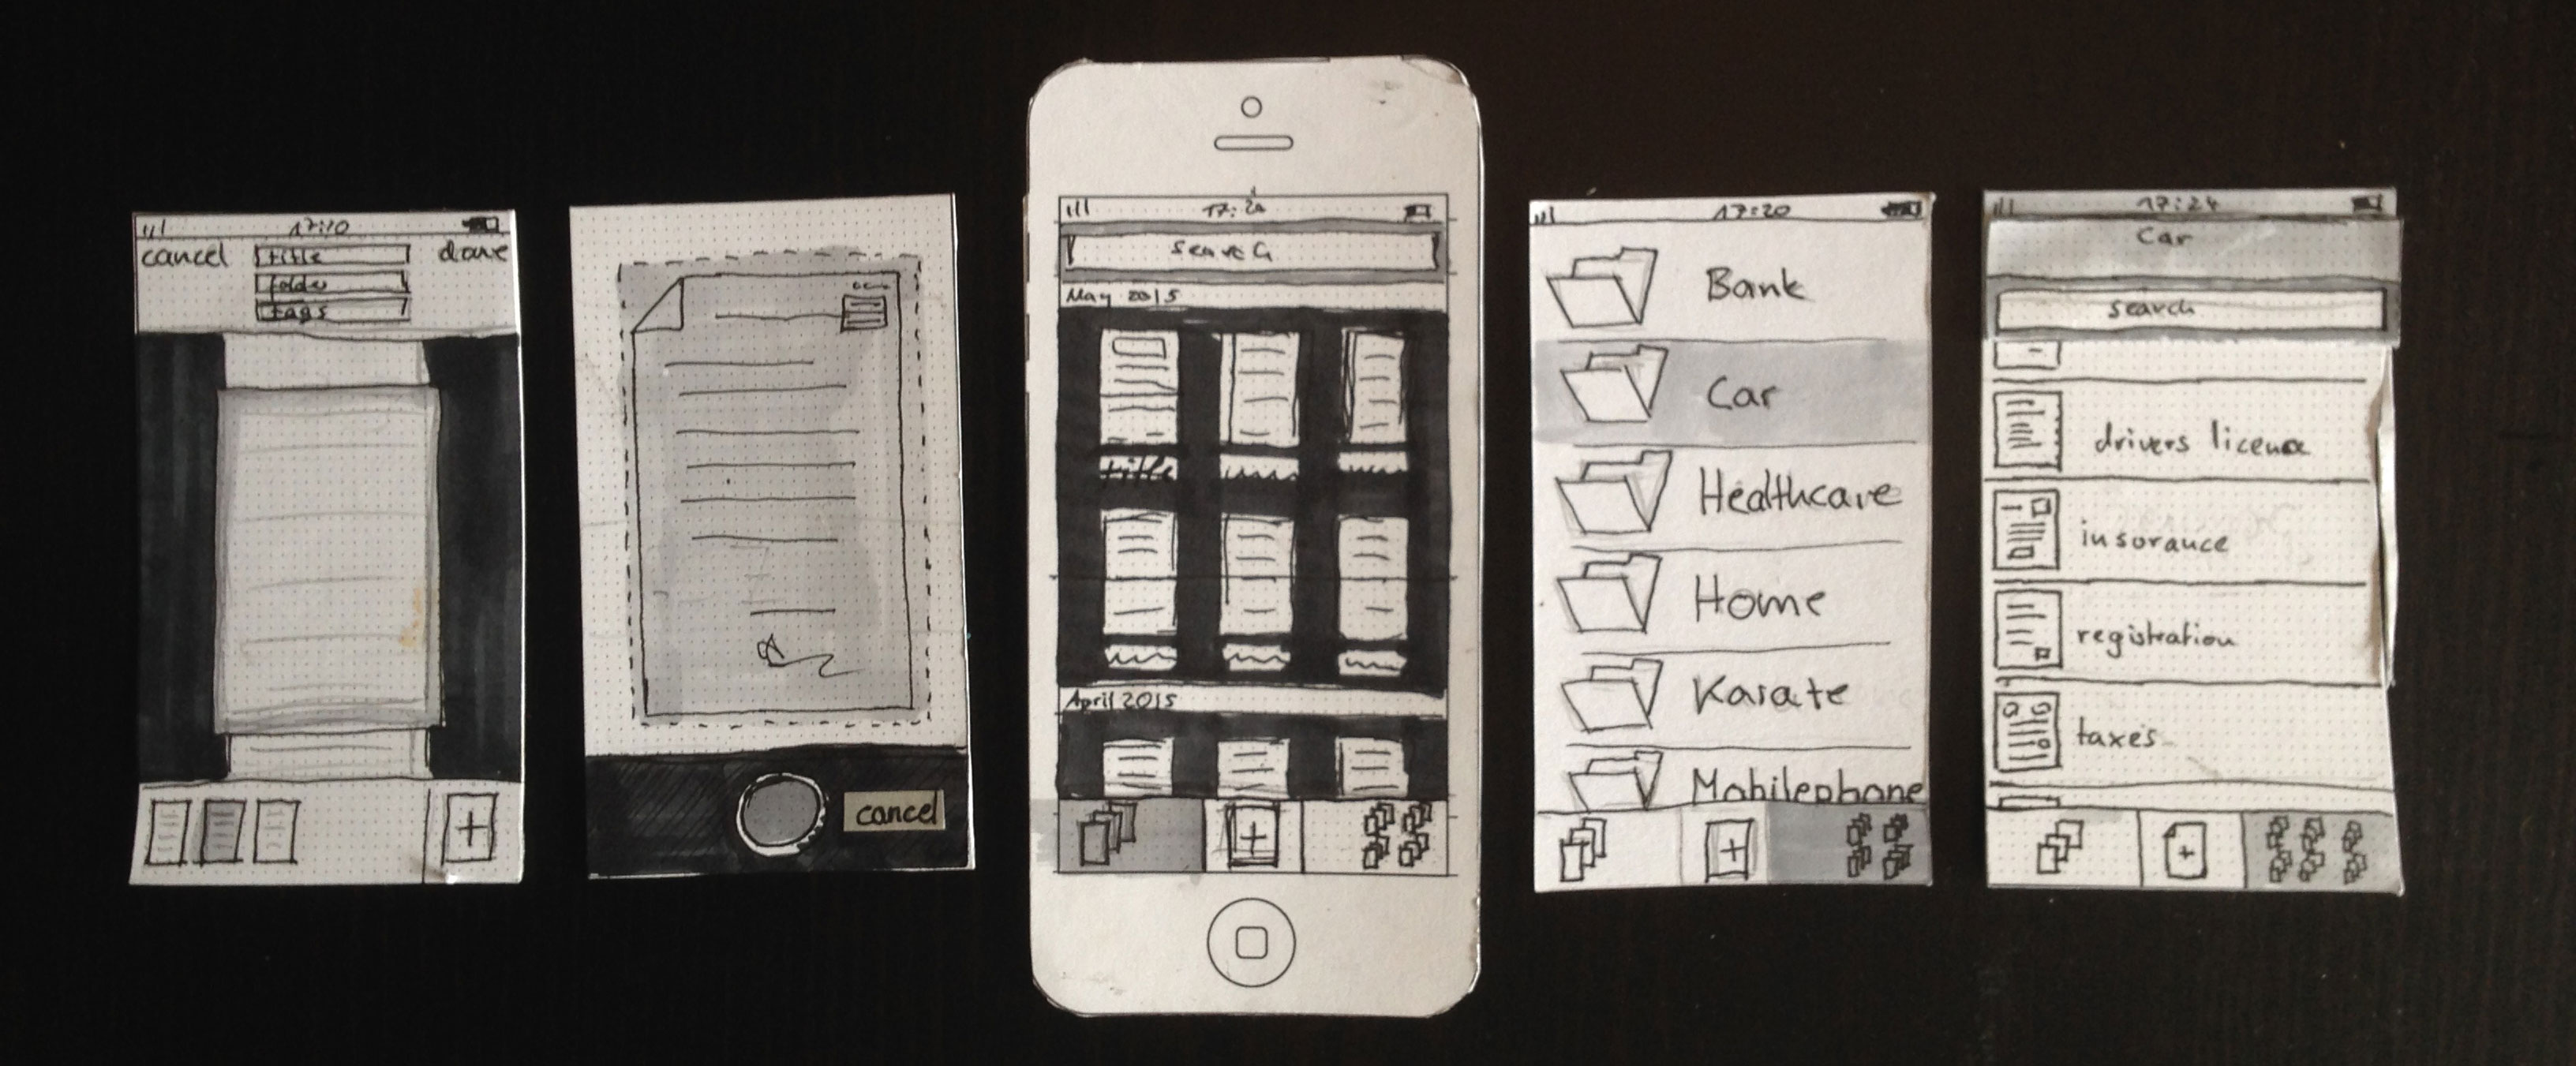 17:20
cancel
title
done
folder
tags
cancel
17:20
Search
May 2015
title
April 2015
17:20
Bank
Car
Healthcare
Home
Karate
Mobilephone
17:24
Car
search
drivers license
insurance
registration
taxes